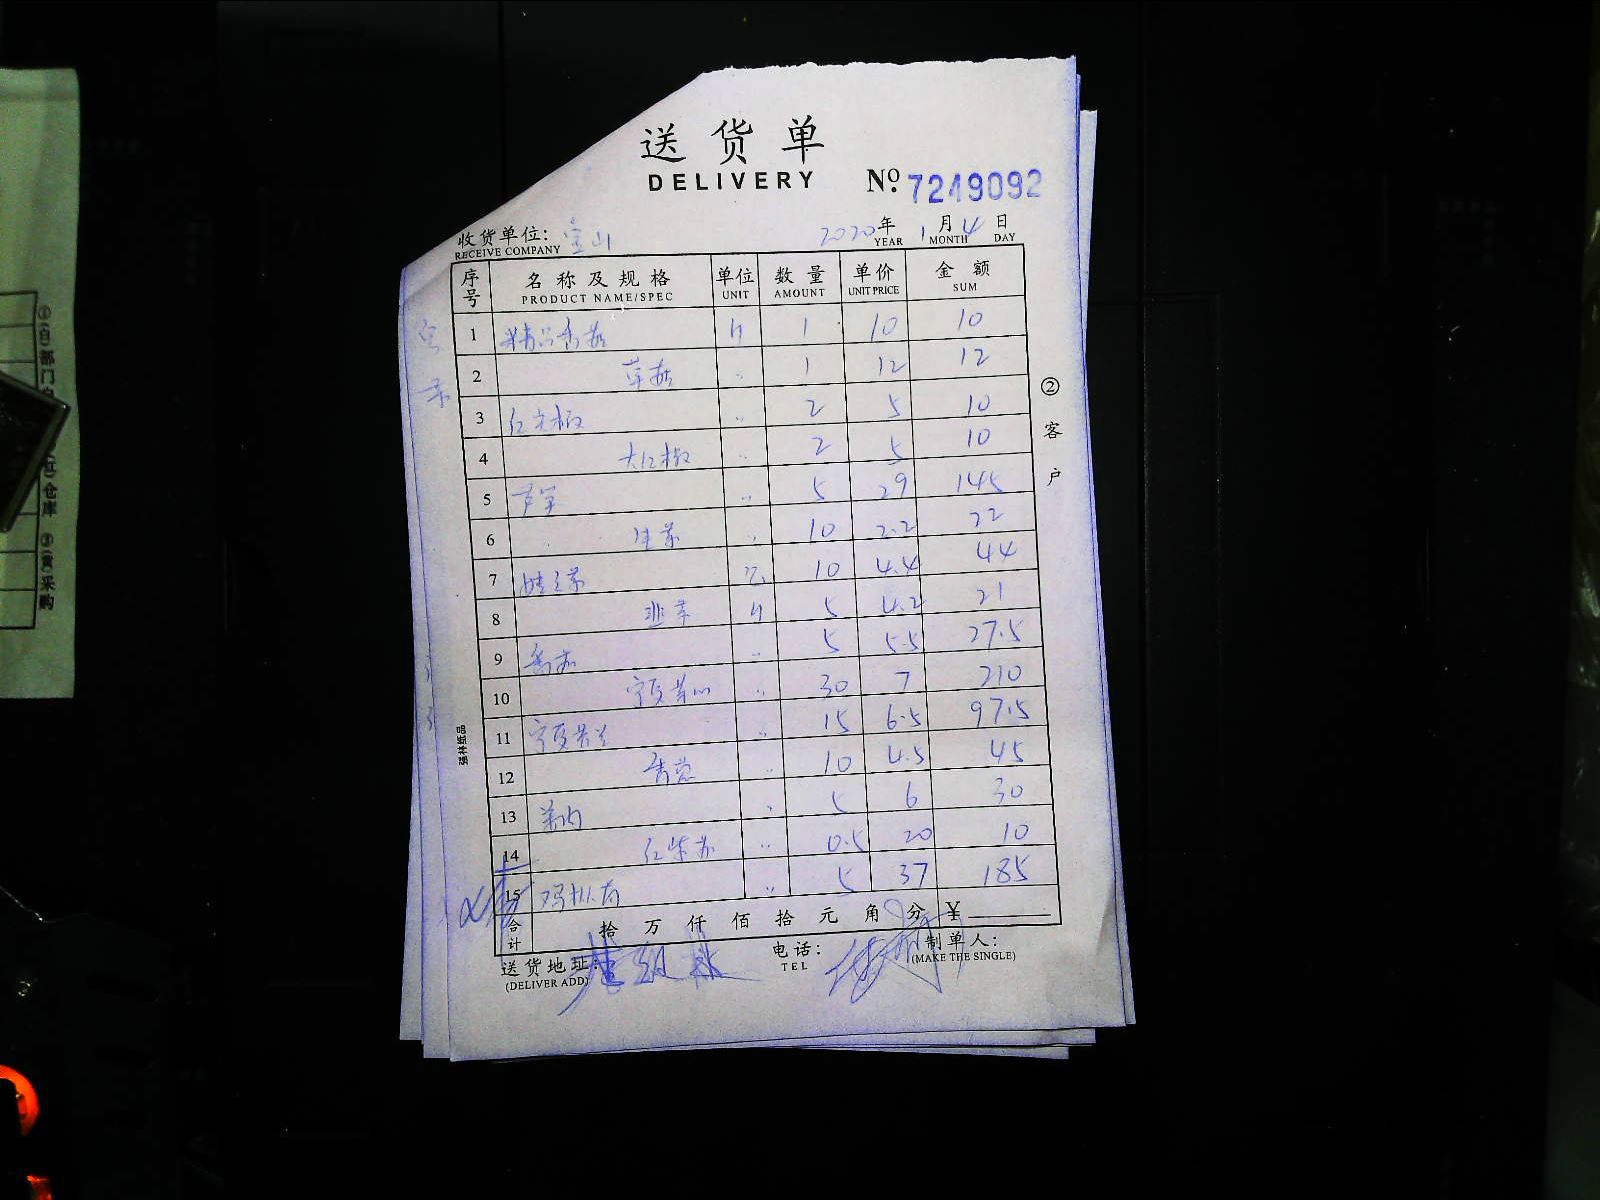 送货单
DELIVERY
№ 7249092
收货单位: 宝山 2020年 1月 4日
RECEIVE COMPANY YEAR MONTH DAY
序号 名称及规格 单位 数量 单价 金额
PRODUCT NAME/SPEC UNIT AMOUNT UNIT PRICE SUM
1 精品香菇 斤 1 10 10
2 草菇 〃 1 12 12
3 红尖椒 〃 2 5 10
4 大红椒 〃 2 5 10
5 芦笋 〃 5 29 145
6 生菜 〃 10 2.2 22
7 娃娃菜 10 4.4 44
8 韭菜 斤 5 4.2 21
9 〃 5 5.5 27.5
10 宁夏菜心 〃 30 7 210
11 宁夏 〃 15 6.5 97.5
12 〃 10 4.5 45
13 〃 5 6 30
14 红紫苏 〃 0.5 20 10
15 鸡枞菌 〃 5 37 185
合计 拾 万 仟 佰 拾 元 角 分 ¥
送货地址: 电话: 制单人:
(DELIVER ADD) TEL (MAKE THE SINGLE)
②客户
强林纸品
仓库
采购